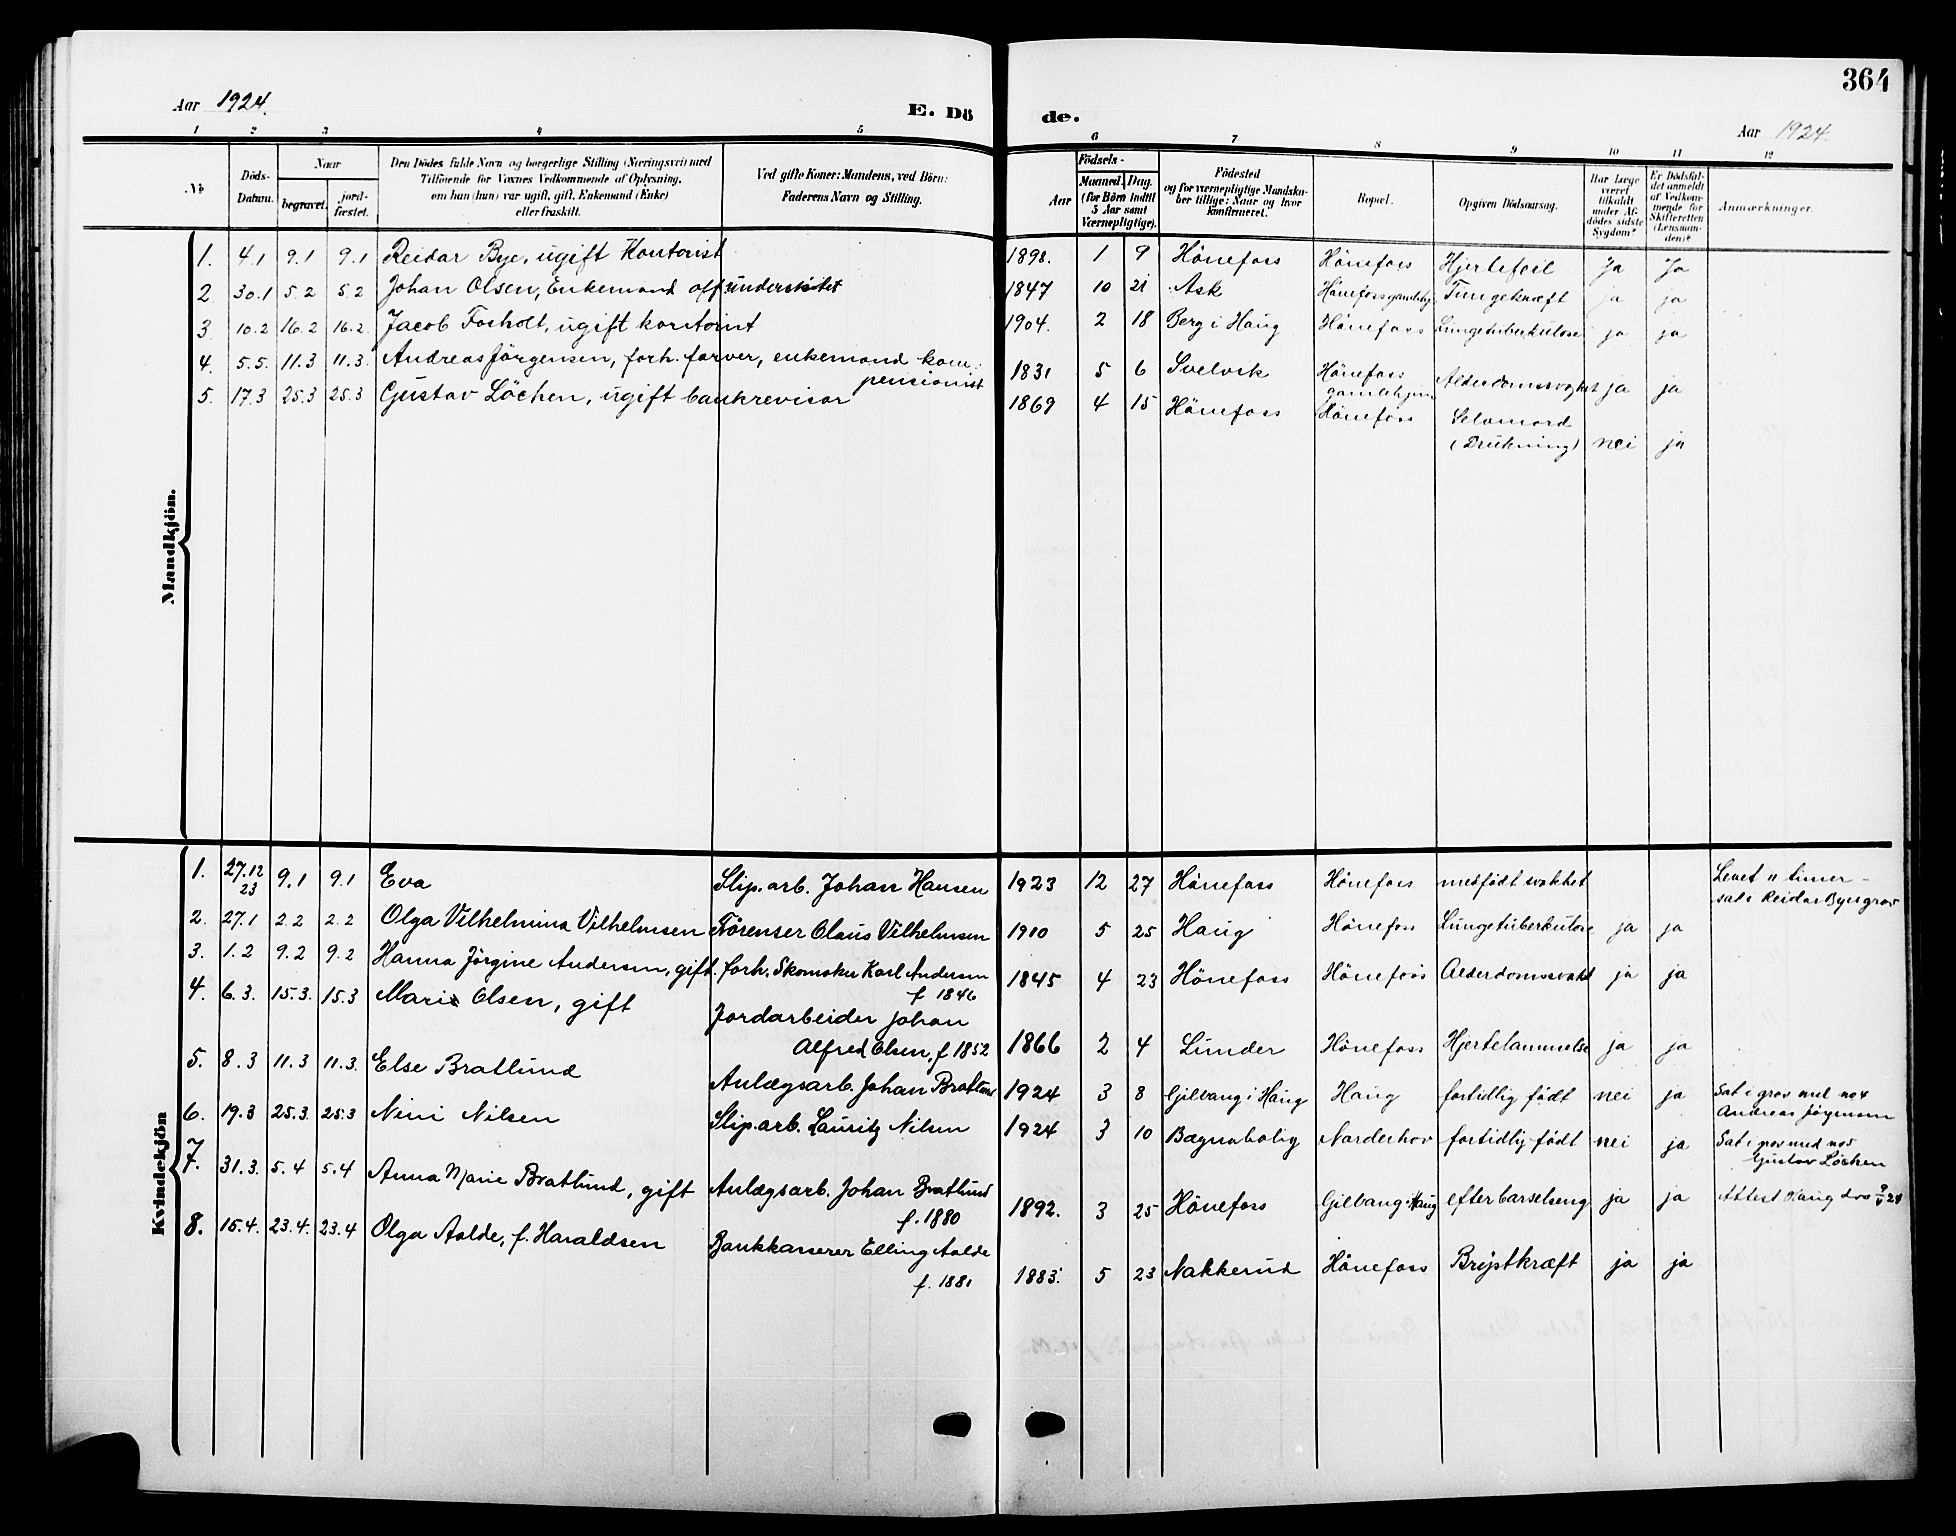 364
Aar 1924.
E. Dö de.
Aar 1924.
1 2 3 4 5 6 7 8 9 10 11 12
No
Döds-Datum.
Naar
begravet. jord-fæstet.
Den Dödes fulde Navn og borgerlige Stilling (Næringsvei) med
Tilföiende for Voxnes Vedkommende af Oplysning,
om han (hun) var ugift, gift, Enkemand (Enke)
eller fraskilt.
Ved gifte Koner: Mandens, ved Börn:
Faderens Navn og Stilling.
Födsels-
Aar
Maaned. Dag.
(for Börn indtil
5 Aar samt
Værnepligtige).
Födested
og for værnepligtige Mandska-
ber tillige: Naar og hvor
konfirmeret.
Bopæl.
Opgiven Dödsaarsag.
Har Læge
været
tilkaldt
under Af-
dödes sidste
Sygdom?
Er Dödsfal-
det anmeldt
af Vedkom-
mende for
Skifteretten
(Lensman-
den)?
Anmærkninger.
Mandkjön.
1. 4.1 9.1 9.1 Reidar Bye, ugift Kontorist 1898. 1 9 Hönefoss Hönefoss Hjertefeil Ja Ja
2 30.1 5.2 5.2 Johan Olsen, Enkemand off. understötet 1847 10 21 Ask Hönefoss gamlehj. Tungekræft ja ja
3 10.2 16.2 16.2. Jacob Fosholt, ugift kontorist 1904. 2 18 Berg i Haug Hönefoss Lungetuberkulose ja ja
4. 5.5. 11.3 11.3. Andreas Jörgensen, forh. farver, enkemand kom.
pensionist 1831 5 6 Svelvik Hönefoss
gamlehjem Alderdomssvakhet ja ja
5. 17.3 25.3 25.3 Gustav Löchen, ugift bankrevisor 1869 4 15 Hönefoss Hönefoss Selvmord
(Drukning) nei ja
Kvindekjön
1. 27.12
23 9.1 9.1 Eva Slip.arb. Johan Hansen 1923 12 27 Hönefoss Hönefoss medfödt svakhet Levet 11 timer -
sat i Reidar Byes grav
2. 27.1 2.2 2.2 Olga Vilhelmina Vilhelmsen Törenser Claus Vilhelmsen 1910 5 25 Haug Hönefoss Lungetuberkulose ja ja
3. 1.2 9.2 9.2 Hanna Jörgine Andersen, gift. forh. Skomaker Karl Andersen
f 1846 1845 4 23 Hönefoss Hönefoss Alderdomssvakh ja ja
4. 6.3. 15.3. 15.3 Marie Olsen, gift Jordarbeider Johan
Alfred Olsen, f 1852 1866 2 4 Lunder Hönefoss Hjertelammelse ja ja
5. 8.3 11.3 11.3. Else Bratlund Anlægsarb. Johan Bratlund 1924 3 8 Gilbang i Haug Haug fortidlig födt nei ja Sat i grav med no 4
Andreas Jörgensen
6. 19.3 25.3 25.3 Nini Nilsen Slip.arb. Lauritz Nilsen 1924 3 10 Bægnabolig Norderhov fortidlig födt nei ja Sat i grav med no 5
Gustav Löchen
7. 31.3. 5.4 5.4 Anna Marie Bratlund, gift Anlægsarb. Johan Bratlund
f. 1880 1892. 3 25 Hönefoss Gilbang i Haug efter barselseng ja ja Attest Haug
8. 15.4. 23.4. 23.4 Olga Aalde, f. Haraldsen Bankkasserer Elling Aalde
f. 1881 1883. 5 23 Nakkerud Hönefoss Brystkræft ja ja